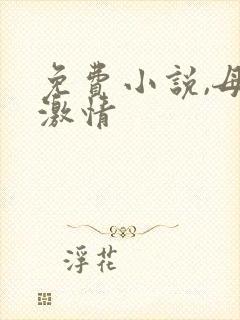 免費小說,母
激情
浮花